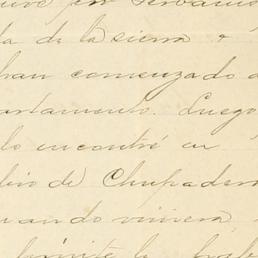 tuve en Servanis
da de la sierra &
han comenzado a
artamento. Luego
lo encontré en
bio de Chupadera
uando viniera,
límite la